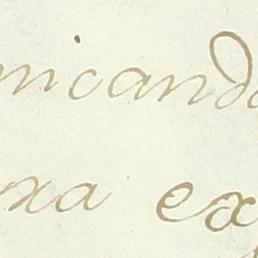 micando
xa ex